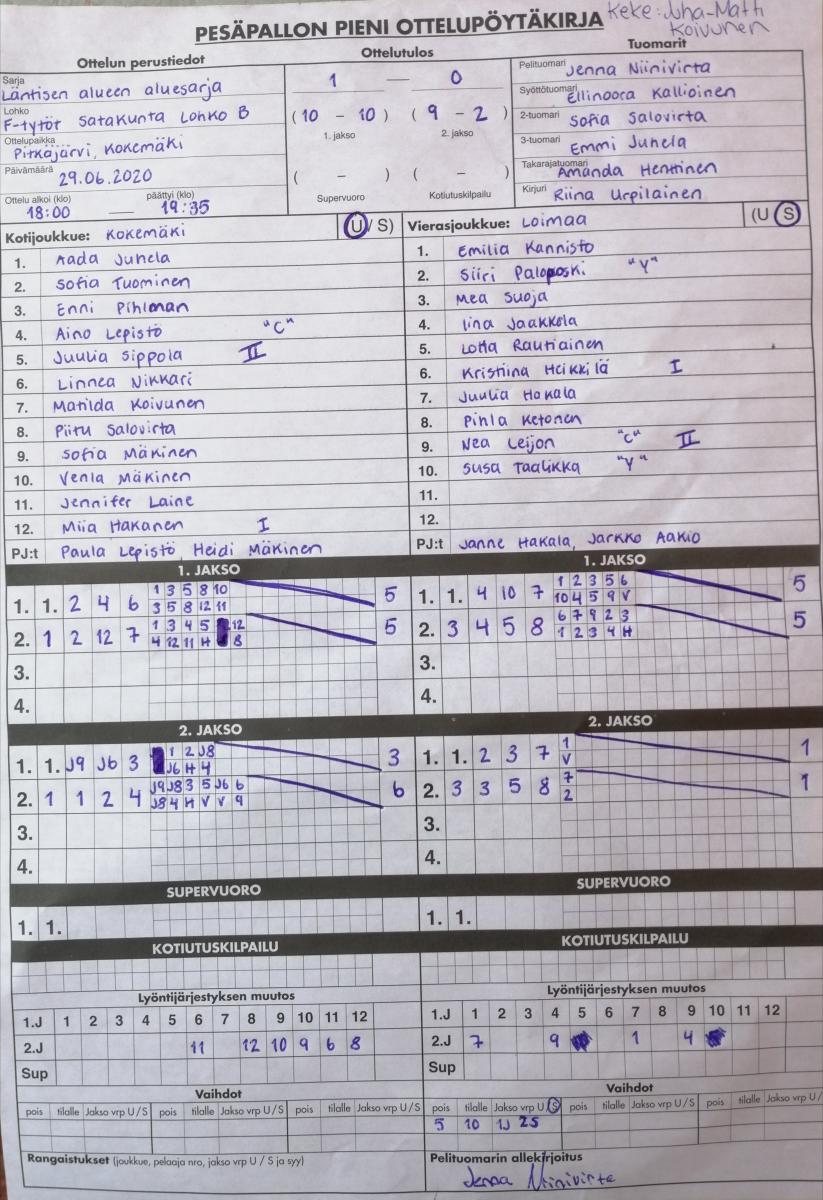 PESÄPALLON PIENI OTTELUPÖYTÄKIRJA
Keke: Juha-Matti Koivunen
Ottelun perustiedot
Sarja
Läntisen alueen aluesarja
Lohko
F-tytöt Satakunta Lohko B
Ottelupaikka
Pitkäjärvi, Kokemäki
Päivämäärä
29.06.2020
Ottelu alkoi (klo) päättyi (klo)
18:00 — 19:35
Ottelutulos
1 — 0
(10 - 10) (9 - 2)
1. jakso 2. jakso
( - ) ( - )
Supervuoro Kotiutuskilpailu
Tuomarit
Pelituomari Jenna Niinivirta
Syöttötuomari Ellinoora Kallioinen
2-tuomari Sofia Salovirta
3-tuomari Emmi Juhela
Takarajatuomari Amanda Henttinen
Kirjuri Riina Urpilainen
Kotijoukkue: Kokemäki (U/S)
1. Aada Juhela
2. Sofia Tuominen
3. Enni Pihlman
4. Aino Lepistö "C"
5. Juulia Sippola II
6. Linnea Nikkari
7. Matilda Koivunen
8. Piitu Salovirta
9. Sofia Mäkinen
10. Venla Mäkinen
11. Jennifer Laine
12. Miia Hakanen I
PJ:t Paula Lepistö, Heidi Mäkinen
Vierasjoukkue: Loimaa (U S)
1. Emilia Kannisto
2. Siiri Paloposki "Y"
3. Mea Suoja
4. Iina Jaakkola
5. Lotta Rautiainen
6. Kristiina Heikkilä I
7. Juulia Hakala
8. Pihla Ketonen
9. Nea Leijon "C" II
10. Susa Taalikka "Y"
11.
12.
PJ:t Janne Hakala, Jarkko Aakio
1. JAKSO
1. 1. 2 4 6 1 3 5 8 10 5
3 5 8 12 11
2. 1 2 12 7 1 3 4 5 12 5
4 12 11 H 8
3.
4.
1. JAKSO
1. 1. 4 10 7 1 2 3 5 6 5
10 4 5 9 V
2. 3 4 5 8 6 7 9 2 3 5
1 2 3 4 H
3.
4.
2. JAKSO
1. 1. J9 J6 3 1 2 J8 3
J6 H 4
2. 1 1 2 4 J9 J8 3 5 J6 6 6
J8 4 H V V 9
3.
4.
2. JAKSO
1. 1. 2 3 7 1 1
V
2. 3 3 5 8 7 1
2
3.
4.
SUPERVUORO
1. 1.
SUPERVUORO
1. 1.
KOTIUTUSKILPAILU
KOTIUTUSKILPAILU
Lyöntijärjestyksen muutos
1.J 1 2 3 4 5 6 7 8 9 10 11 12
2.J 11 12 10 9 6 8
Sup
Lyöntijärjestyksen muutos
1.J 1 2 3 4 5 6 7 8 9 10 11 12
2.J 7 9 1 4
Sup
Vaihdot
pois tilalle Jakso vrp U/S pois tilalle Jakso vrp U/S pois tilalle Jakso vrp U/S
Vaihdot
pois tilalle Jakso vrp U/S pois tilalle Jakso vrp U/S pois tilalle Jakso vrp U/
5 10 1J 2S
Rangaistukset (joukkue, pelaaja nro, jakso vrp U / S ja syy)
Pelituomarin allekirjoitus
Jenna Niinivirta